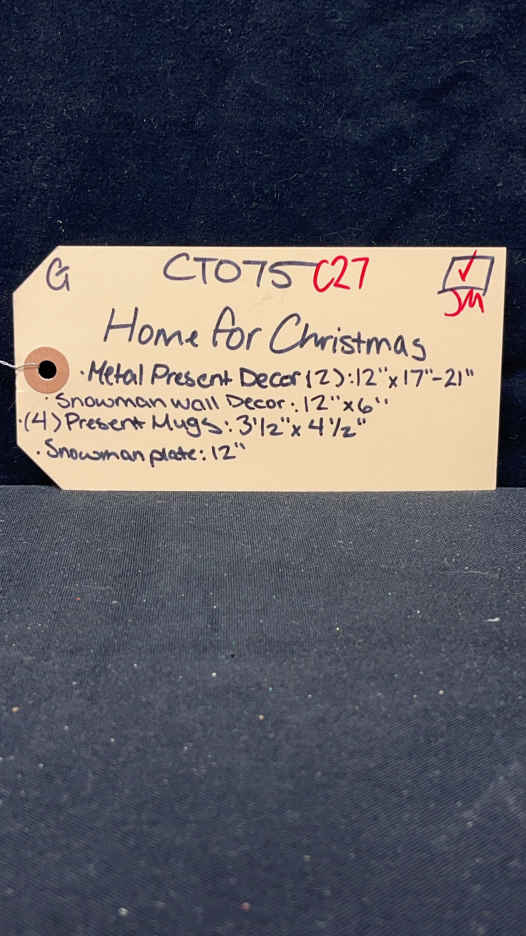 G CT075 C27 ✓
JM
Home for Christmas
· Metal Present Decor (2): 12" x 17"-21"
· Snowman Wall Decor: 12" x 6"
· (4) Present Mugs: 3 1/2" x 4 1/2"
· Snowman plate: 12"